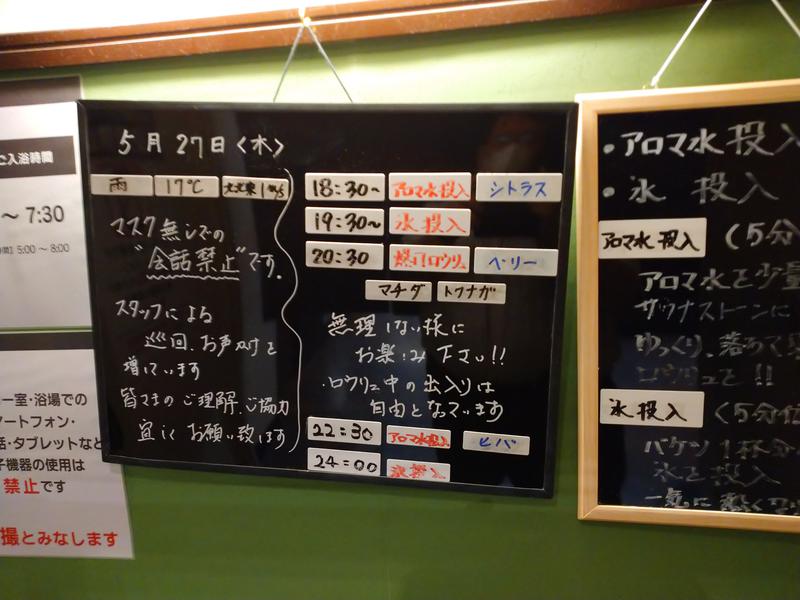 ご入浴時間
～ 7:30
5:00 ～ 8:00
室・浴場での
マートフォン・
話・タブレットなど
子機器の使用は
禁止です
撮とみなします
5月27日<木>
雨 17℃
マスク無しでの
"会話禁止"です。
スタッフによる
巡回、お声かけを
増しています
皆さまのご理解、ご協力
宜しくお願い致します
18:30～ アロマ水投入 シトラス
19:30～ 氷投入
20:30 爆門ロウリュ ベリー
マチダ トクナガ
無理しない様に
お楽しみ下さい!!
・ロウリュ中の出入りは
自由となっています
22:30 アロマ水投入 ヒバ
24:00 氷投入
・アロマ水投入
・氷 投入
アロマ水投入 (5分
アロマ水を少量
サウナストーンに
ゆっくり、落
ロウリュを!!
氷投入 (5分
バケツ1杯分
氷を投入
一気に熱くな